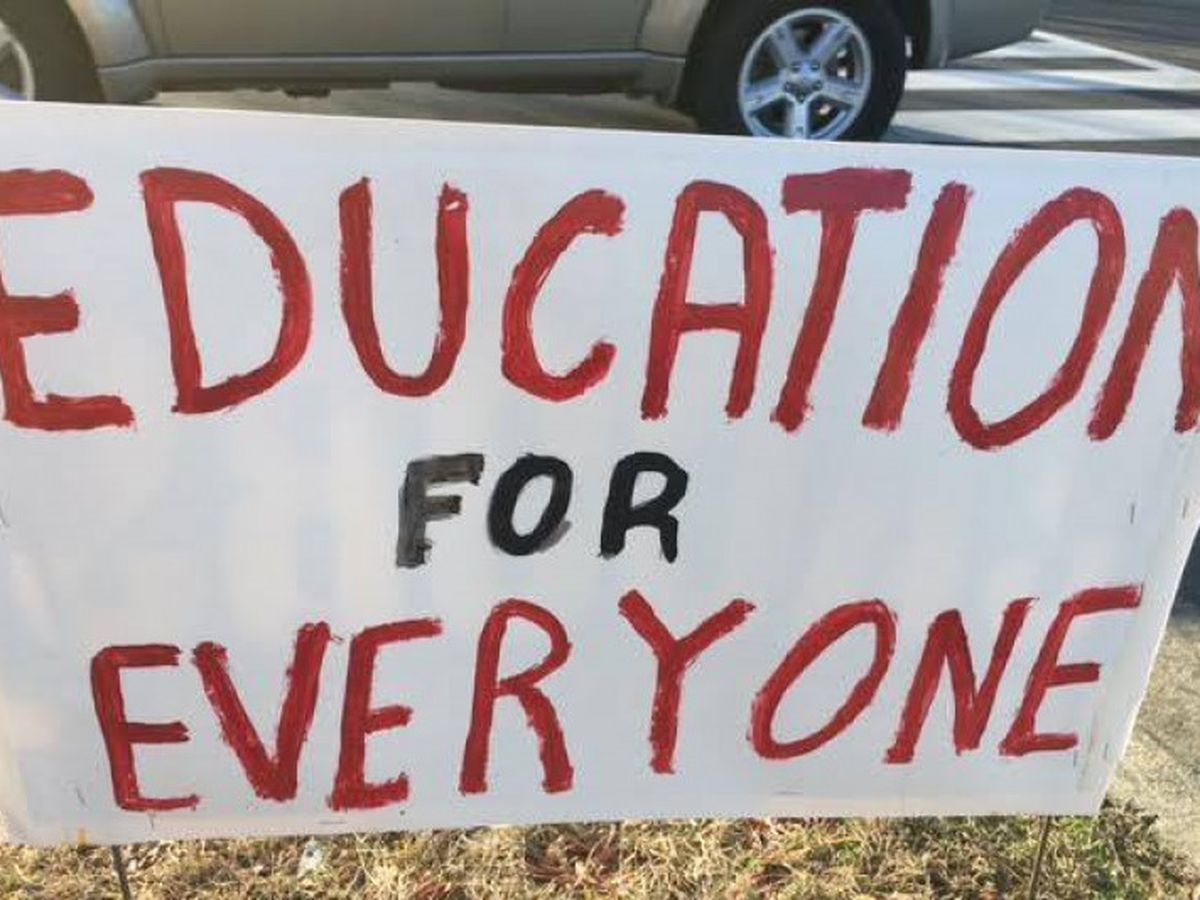 EDUCATION
FOR
EVERYONE